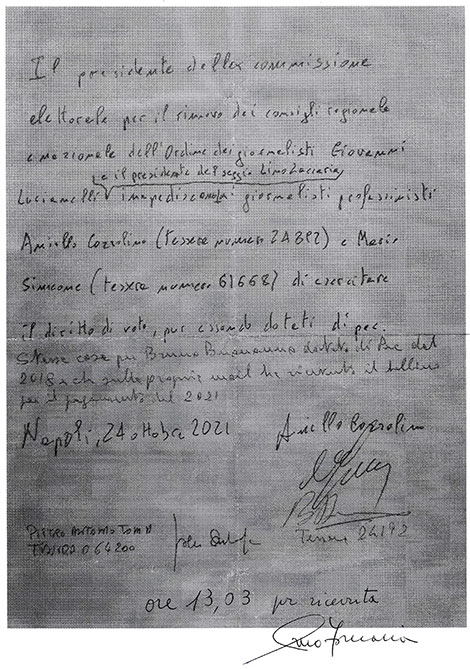 Il presidente della commissione
elettorale per il rinnovo dei consigli regionale
e nazionale dell'Ordine dei giornalisti Giovanni
e il presidente del seggio Lino Zaccaria
Lucianelli impediscono ai giornalisti professionisti
Aniello Cozzolino (tessera numero 24892) e Mario
Simeone (tessera numero 61668) di esercitare
il diritto di voto, pur essendo dotati di pec.
Stessa cosa per Bruno Buonanno dotato di Pec dal
2018 e che sulla propria mail ha ricevuto il bollino
per il pagamento del 2021
Napoli, 24 ottobre 2021 Aniello Cozzolino
PIETRO ANTONIO TOMA
TESSERA 064200
Tessera 24192
ore 13,03 per ricevuta